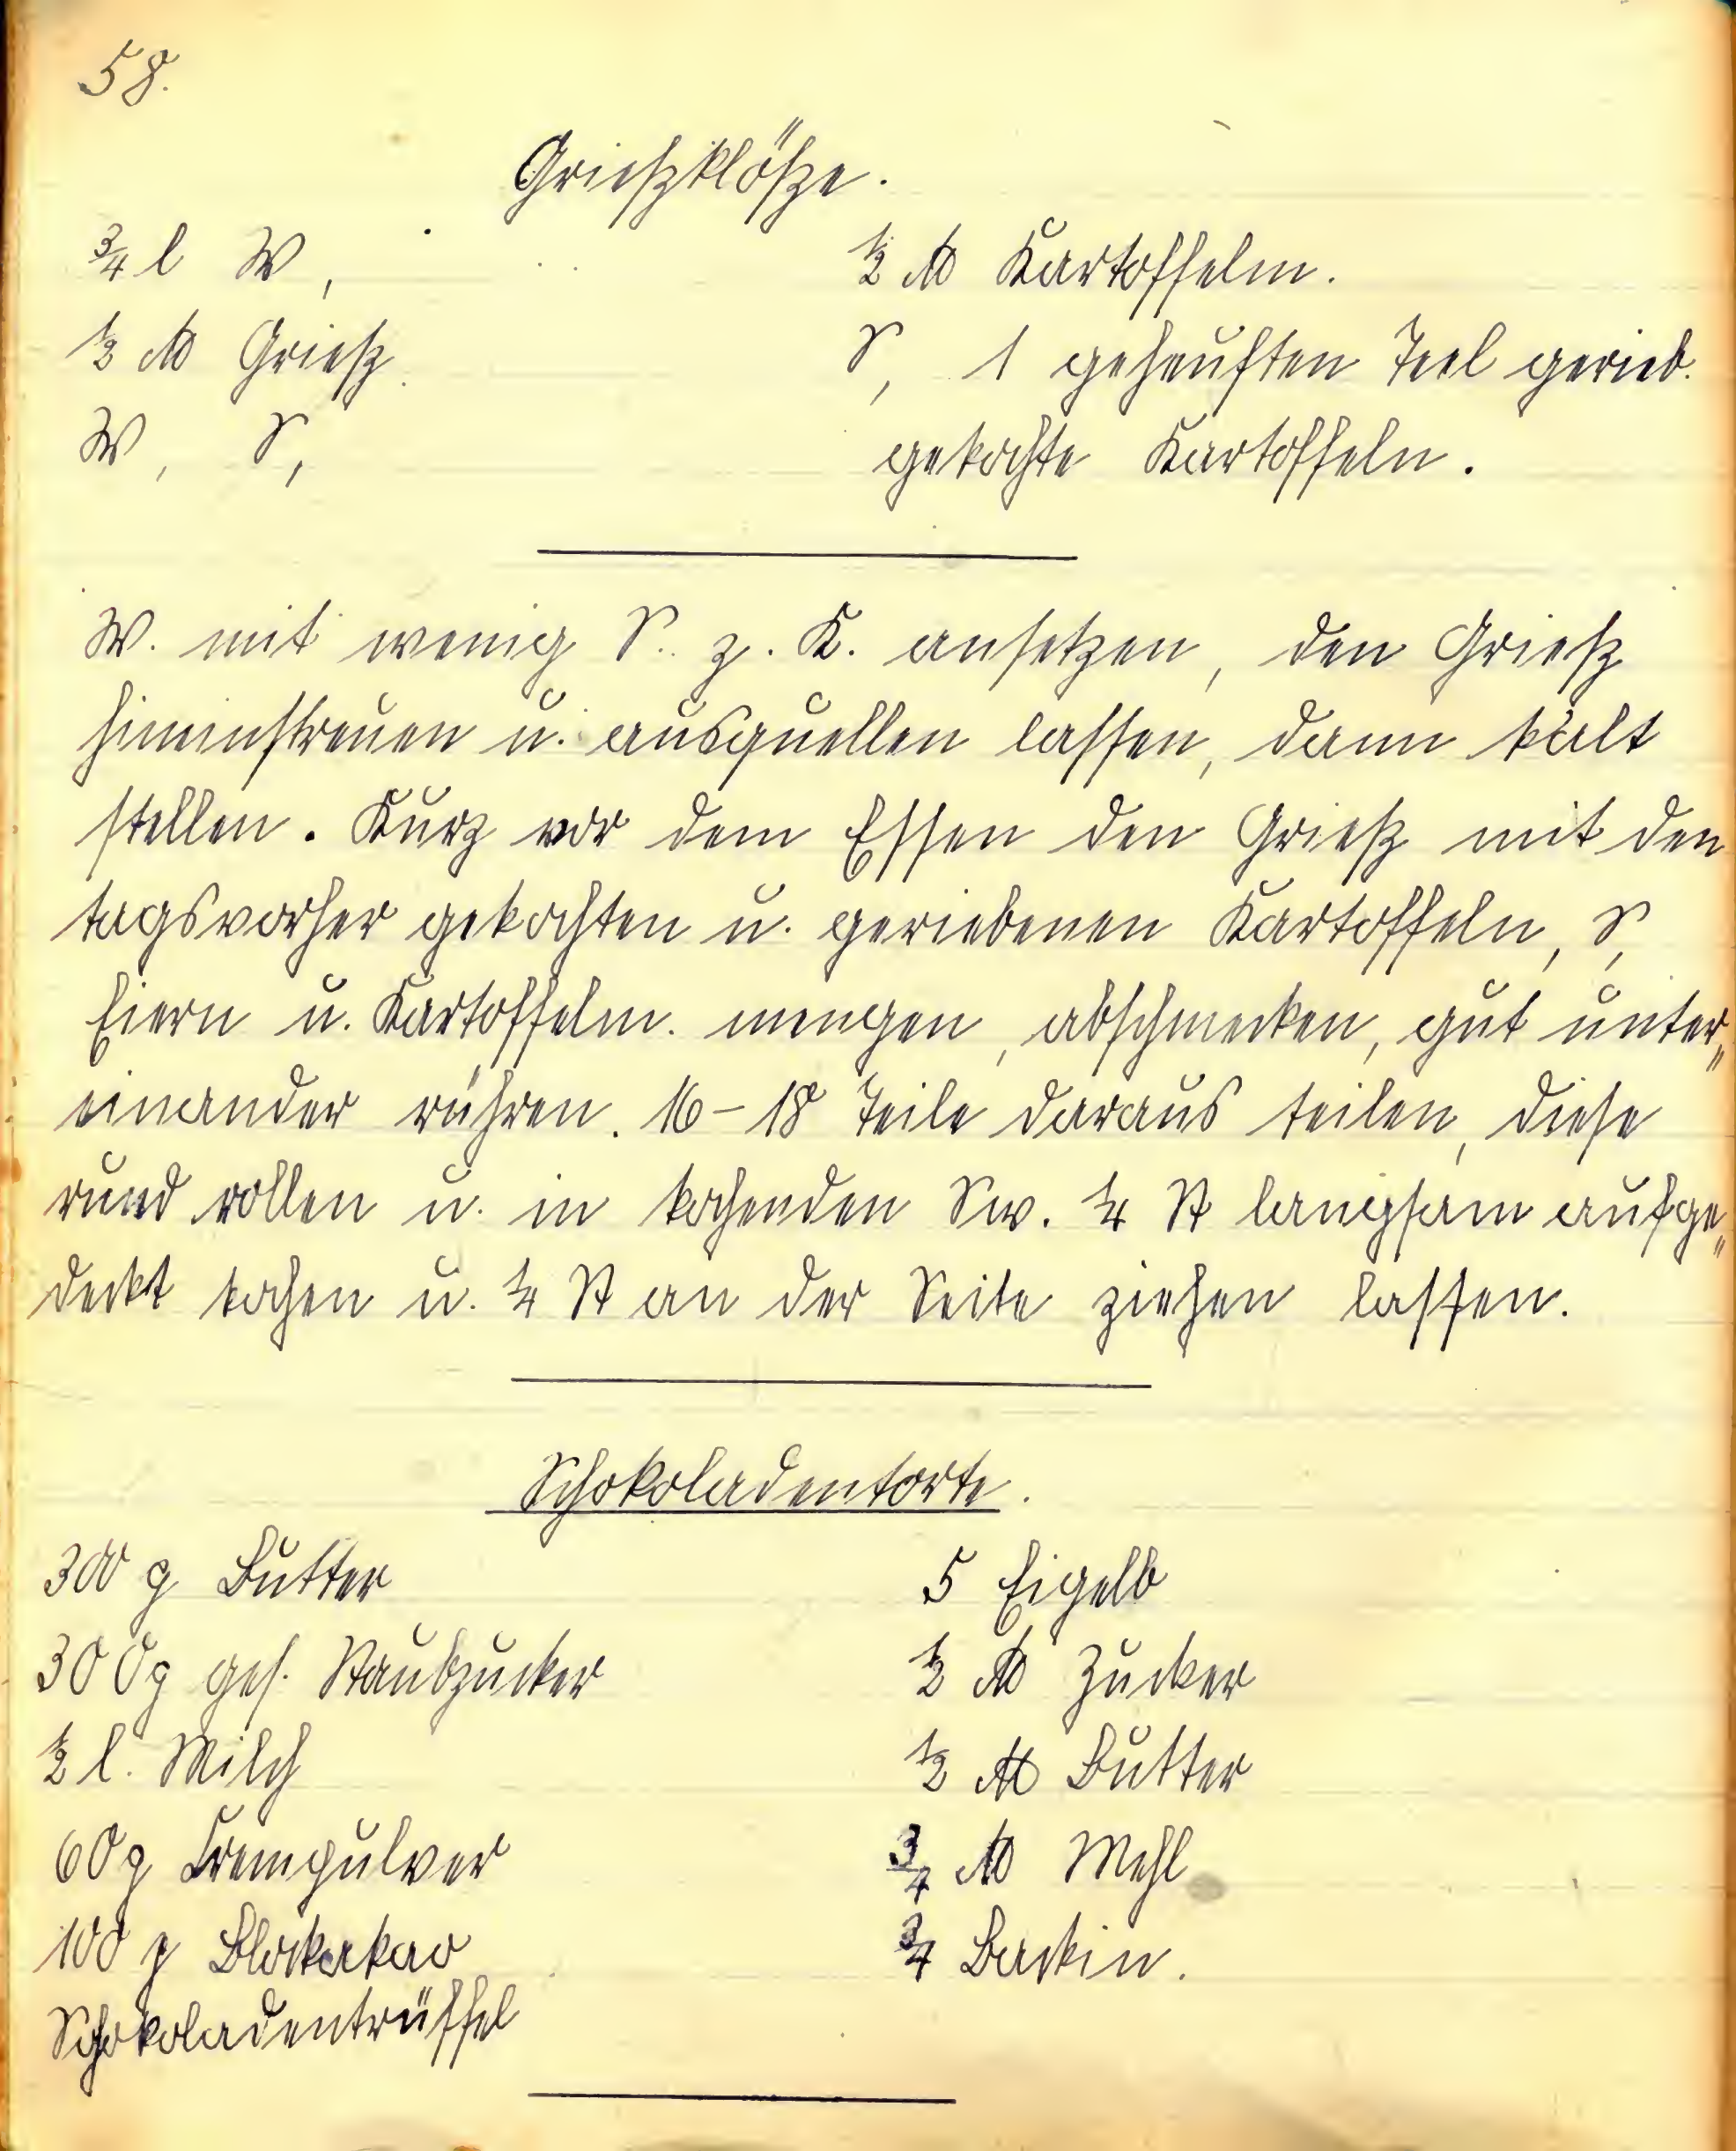 58.
Grießklöße.
¾ l W,
½ ℔ Grieß.
W, S,
½ ℔ Kartoffelm.
S, 1 gehäuften Teel gerieb.
gekochte Kartoffeln.
W. mit wenig S. z. K. ansetzen, den Grieß
hineinstreuen u. ausquellen lassen, dann kalt
stellen. Kurz vor dem Essen den Grieß mit den
tagsvorher gekochten u. geriebenen Kartoffeln, S,
Eiern u. Kartoffelm. mengen, abschmecken, gut unter„
einander rühren. 16-18 Teile daraus teilen, diese
rund rollen u. in kochenden Sw. ¼ St langsam aufge„
deckt kochen u. ¼ St an der Seite ziehen lassen.
Schokoladentorte.
300 g Butter
300g ges. Staubzucker
½ l. Milch
60g Crempulver
100 g Blockakao
Schokoladentrüffel
5 Eigelb
½ ℔ Zucker
½ ℔ Butter
¾ ℔ Mehl
¾ Backin.